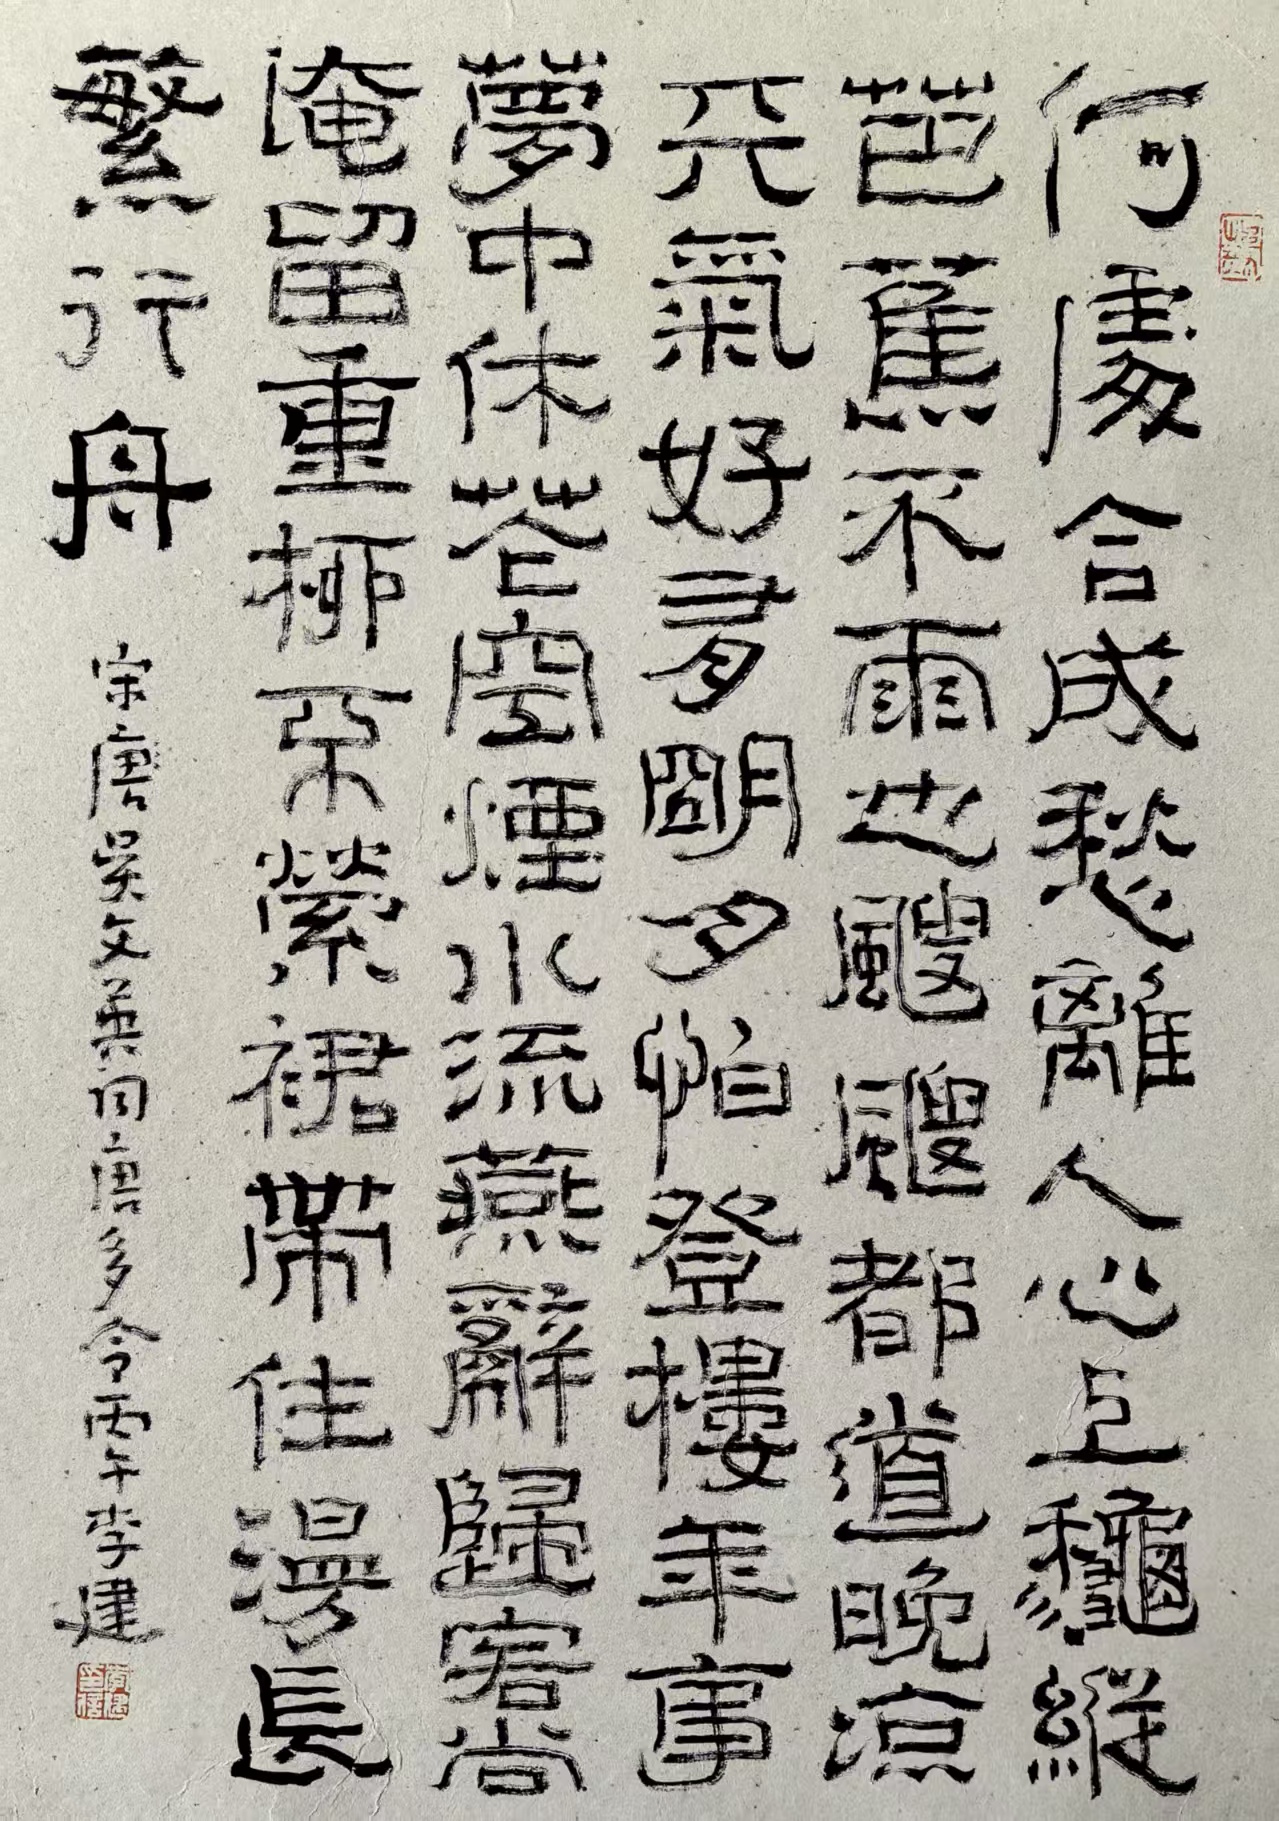 何處合成愁離人心上龝縱
芭蕉不雨也颼颼都道晚涼
天氣好有朙月怕登樓年事
夢中休花空煙水流燕辭歸客尚
淹留重柳不縈裙帶住漫長
繁行舟
宋唐吴文英词唐多令丙午李建